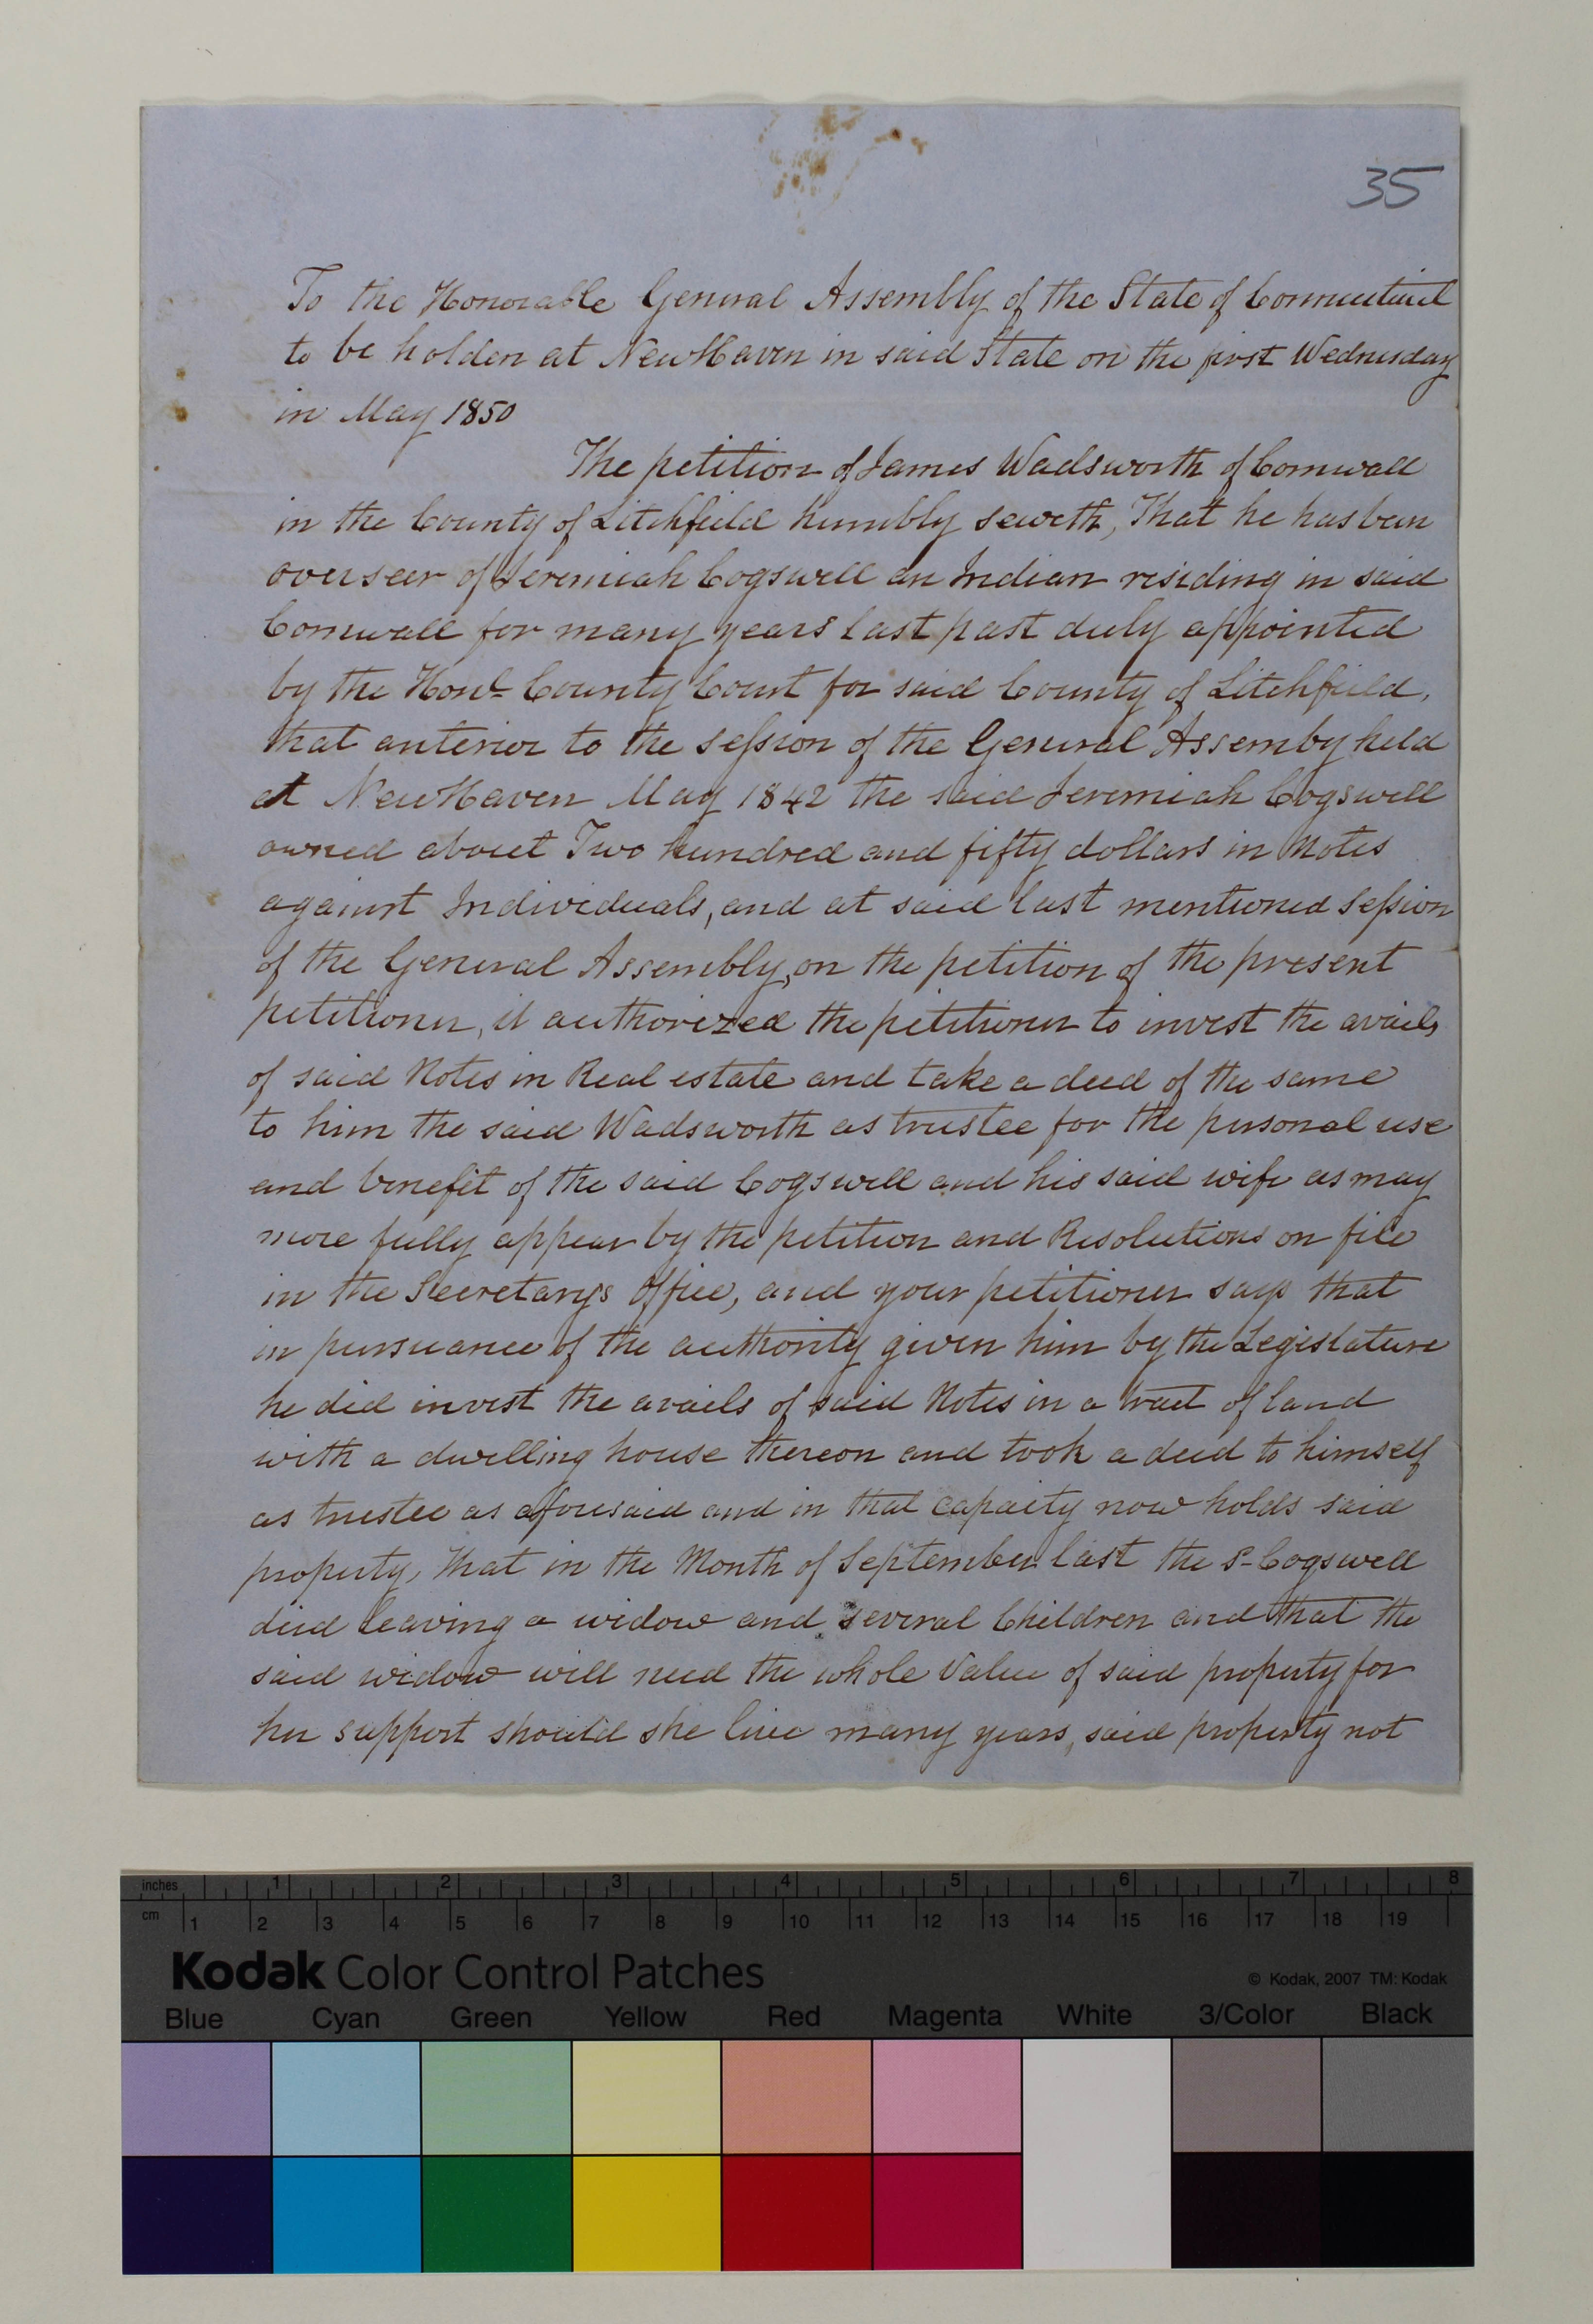 35
To the Honorable General Assembly of the State of Connecticut
to be holden at New Haven in said State on the first Wednesday
in May 1850
The petition of James Wadsworth of Cornwall
in the County of Litchfield humbly seweth, That he has been
overseer of Jeremiah Cogswell an Indian residing in said
Cornwall for many years last past duly appointed
by the Honl County Court for said County of Litchfield,
that anterior to the session of the General Assemby held
at New Haven May 1842 the said Jeremiah Cogswell
owned about Two hundred and fifty dollars in Notes
against Individuals, and at said last mentioned Session
of the General Assembly, on the petition of the present
petitioner, it authorized the petitioner to invest the avails
of said Notes in Real estate and take a deed of the same
to him the said Wadsworth as trustee for the personal use
and benefit of the said Cogswell and his said wife as may
more fully appear by the petition and Resolutions on file
in the Secretarys Office, and your petitioner says that
in pursuance of the authority given him by the Legislature
he did invest the avails of said Notes in a tract of land
with a dwelling house thereon and took a deed to himself
as trustee as aforesaid and in that capacity now holds said
property, that in the Month of September last the sd Cogswell
died leaving a widow and several Children and that the
said widow will need the whole value of said property for
her support should she live many years, said property not
inches 1 2 3 4 5 6 7 8
cm 1 2 3 4 5 6 7 8 9 10 11 12 13 14 15 16 17 18 19
Kodak Color Control Patches
© Kodak, 2007 TM: Kodak
Blue Cyan Green Yellow Red Magenta White 3/Color Black